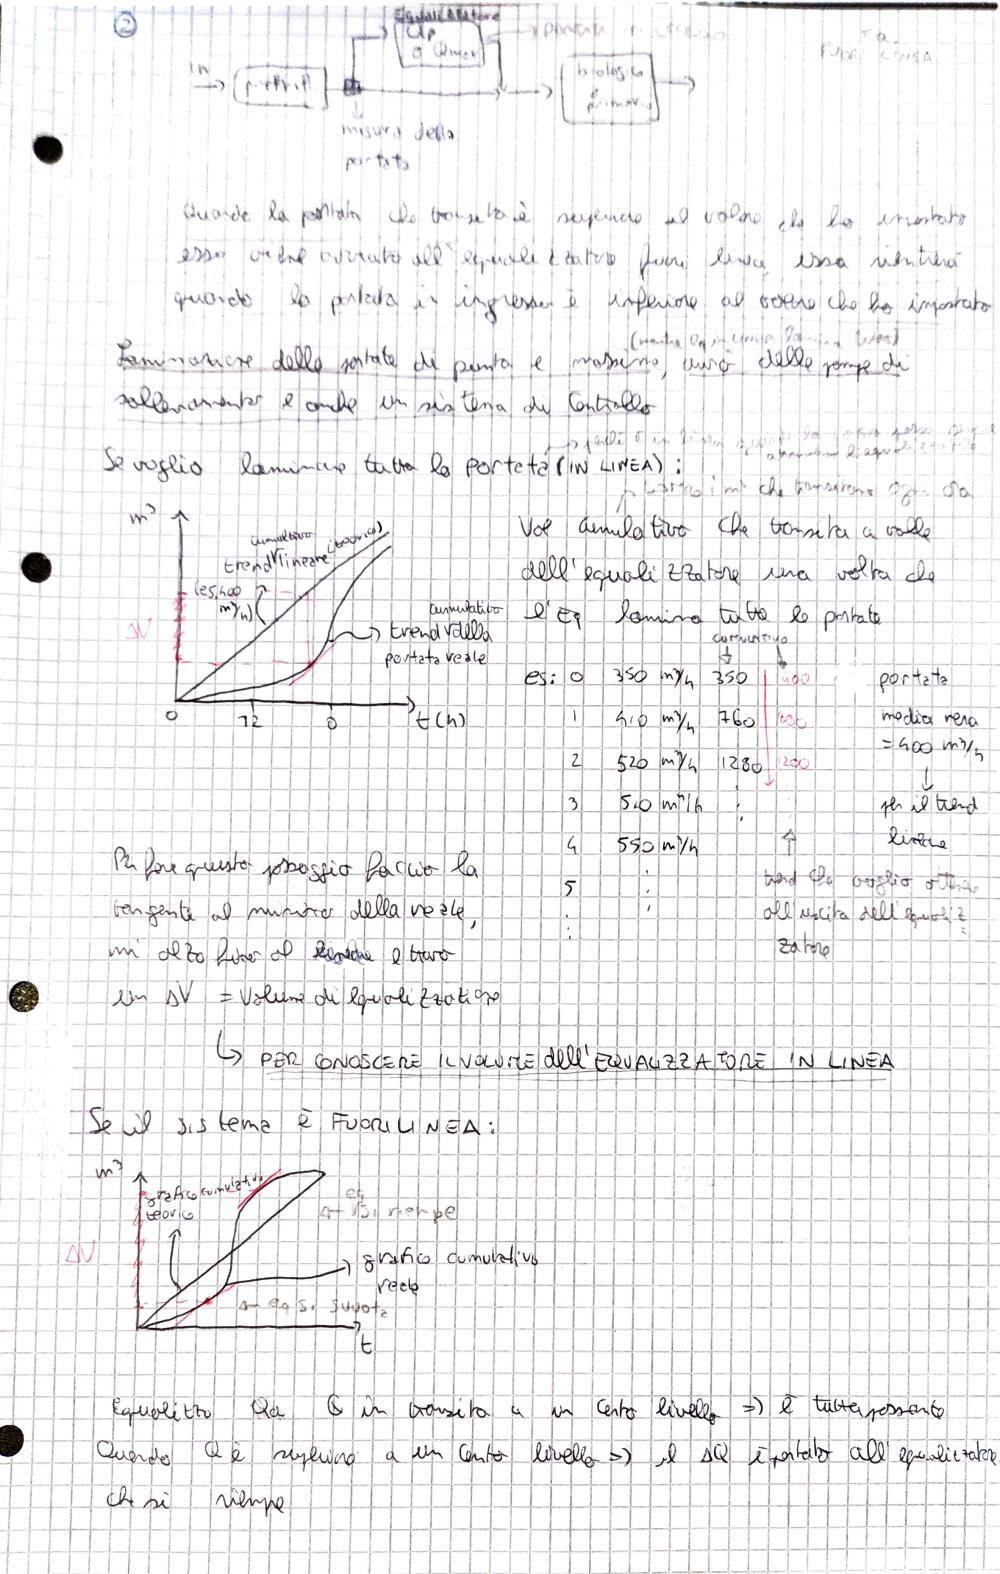 ②
Equalizzatore
FUORI LINEA
in
biologico
primario
misura della
portata
Quando la portata che transita è superiore al valore che ho impostato
essa viene all'equalizzatore fuori linea, essa rientrerà
quando la portata in ingresso è inferiore al valore che ho impostato
Laminazione delle portate di punta e massime, delle pompe di
sollevamento e anche un sistema di controllo
Se voglio laminare tutta la portata (IN LINEA):
i m³ che transitano ogni ora
m³
cumulativo
trend lineare (teorico)
(es. 400
m³/h)
ΔV
cumulativo
trend della
portata reale
0
12
0
t (h)
Vol cumulativo che transita a valle
dell'equalizzatore una volta che
l'Eq lamina tutte le portate
cumulativo
es: 0 350 m³/h 350 400 portata
1 410 m³/h 760 800 media nera
= 400 m³/h
2 520 m³/h 1280 1200
3 510 m³/h : per il trend
4 550 m³/h lineare
5 : trend che voglio
all'uscita dell'equaliz=
zatore
Per fare questo passaggio faccio la
tangente al minimo della reale,
mi alzo fino al e trovo
un ΔV = Volume di equalizzazione
↳ PER CONOSCERE IL VOLUME dell'EQUALIZZATORE IN LINEA
Se il sistema è FUORI LINEA:
m³
grafico cumulativo
teorico
eq
si riempe
ΔV
grafico cumulativo
reale
← eq si svuota
t
Equalizzo Q in transito a un certo livello => è tutta passante
Quando Q è superiore a un certo livello => il ΔQ è portato all'equalizzatore
che si riempe